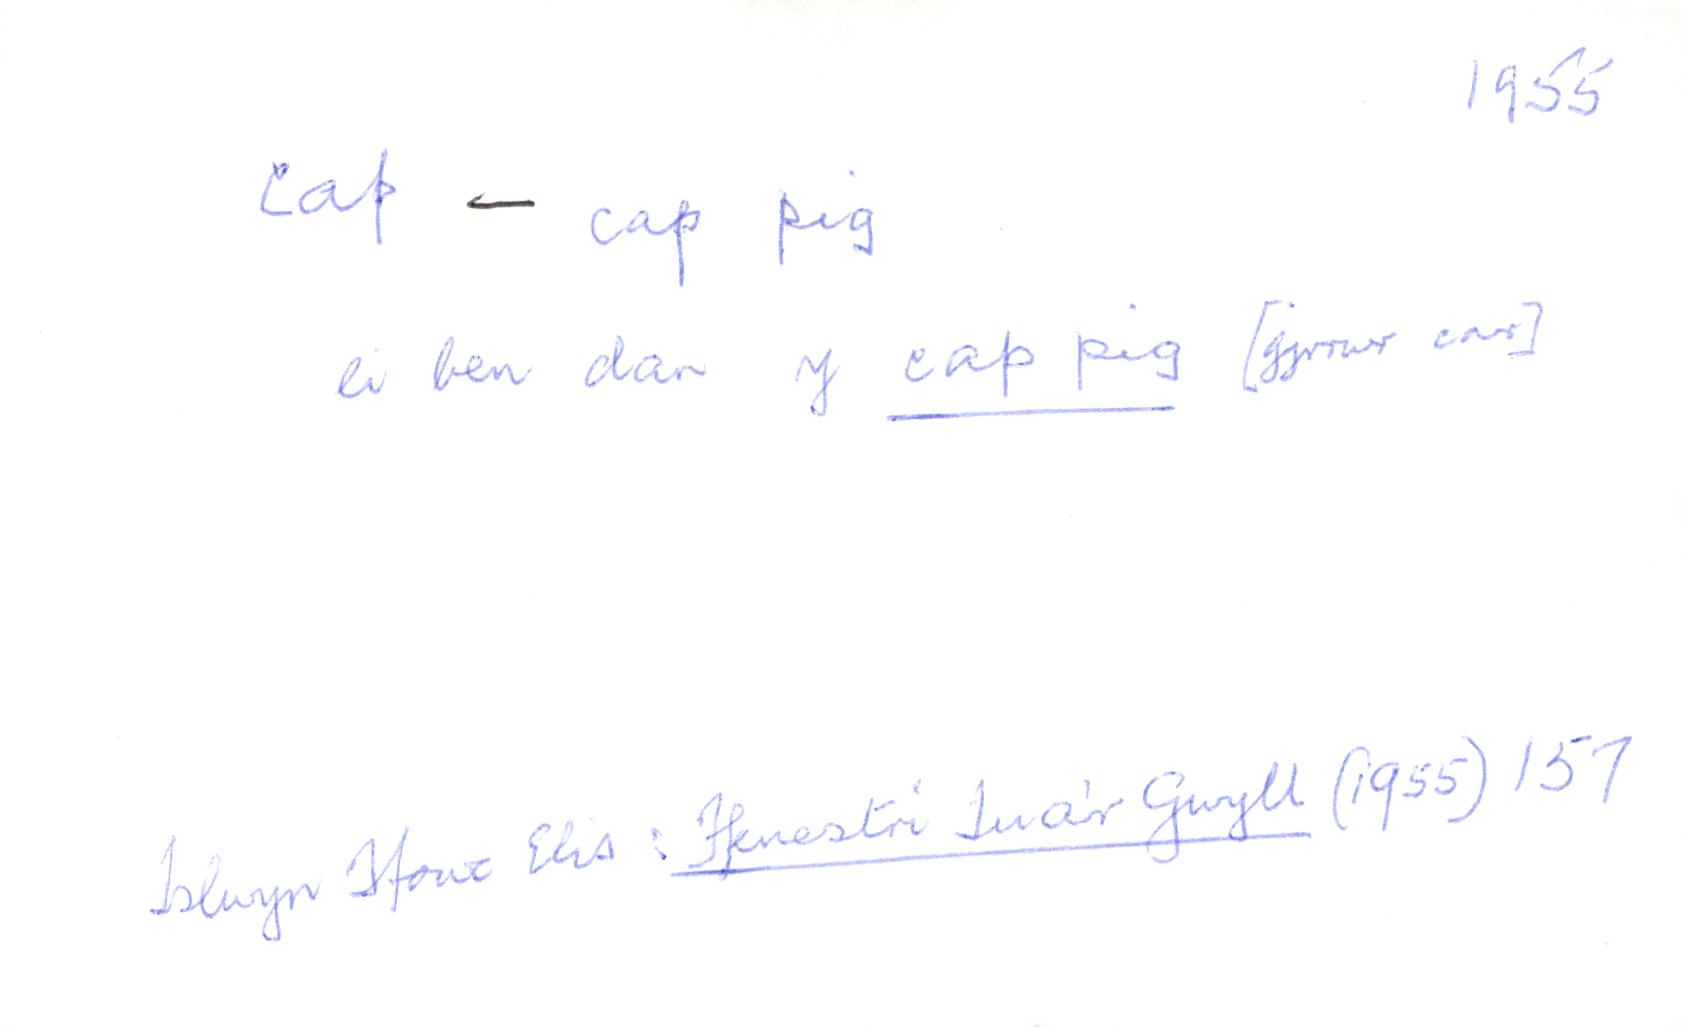 1955
cap – cap pig
ei ben dan y cap pig [gyrrwr car]
Islwyn Ffowc Elis: Ffenestri Tua'r Gwyll (1955) 157